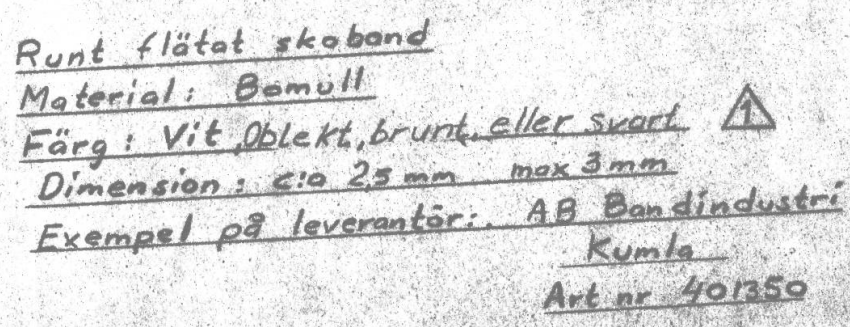 Runt flätat skoband
Material: Bomull
Färg: Vit, Oblekt, brunt, eller svart 1
Dimension: c:a 2,5 mm max 3 mm
Exempel på leverantör: AB Bandindustri
Kumla
Art nr 401350